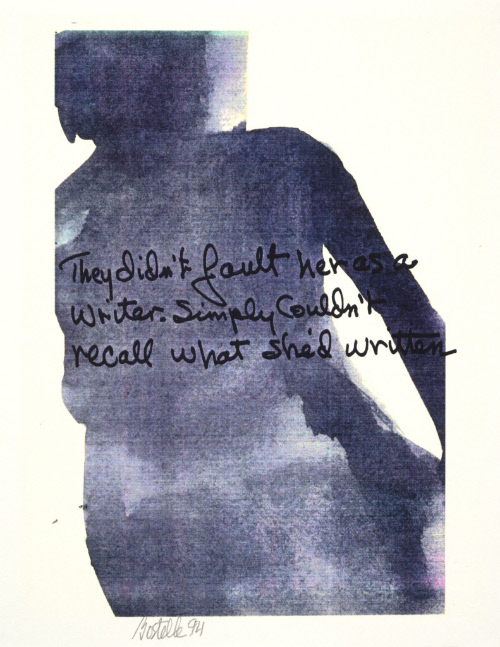 They didn't fault her as a
writer. Simply Couldn't
recall what she'd written
Bostelle 94